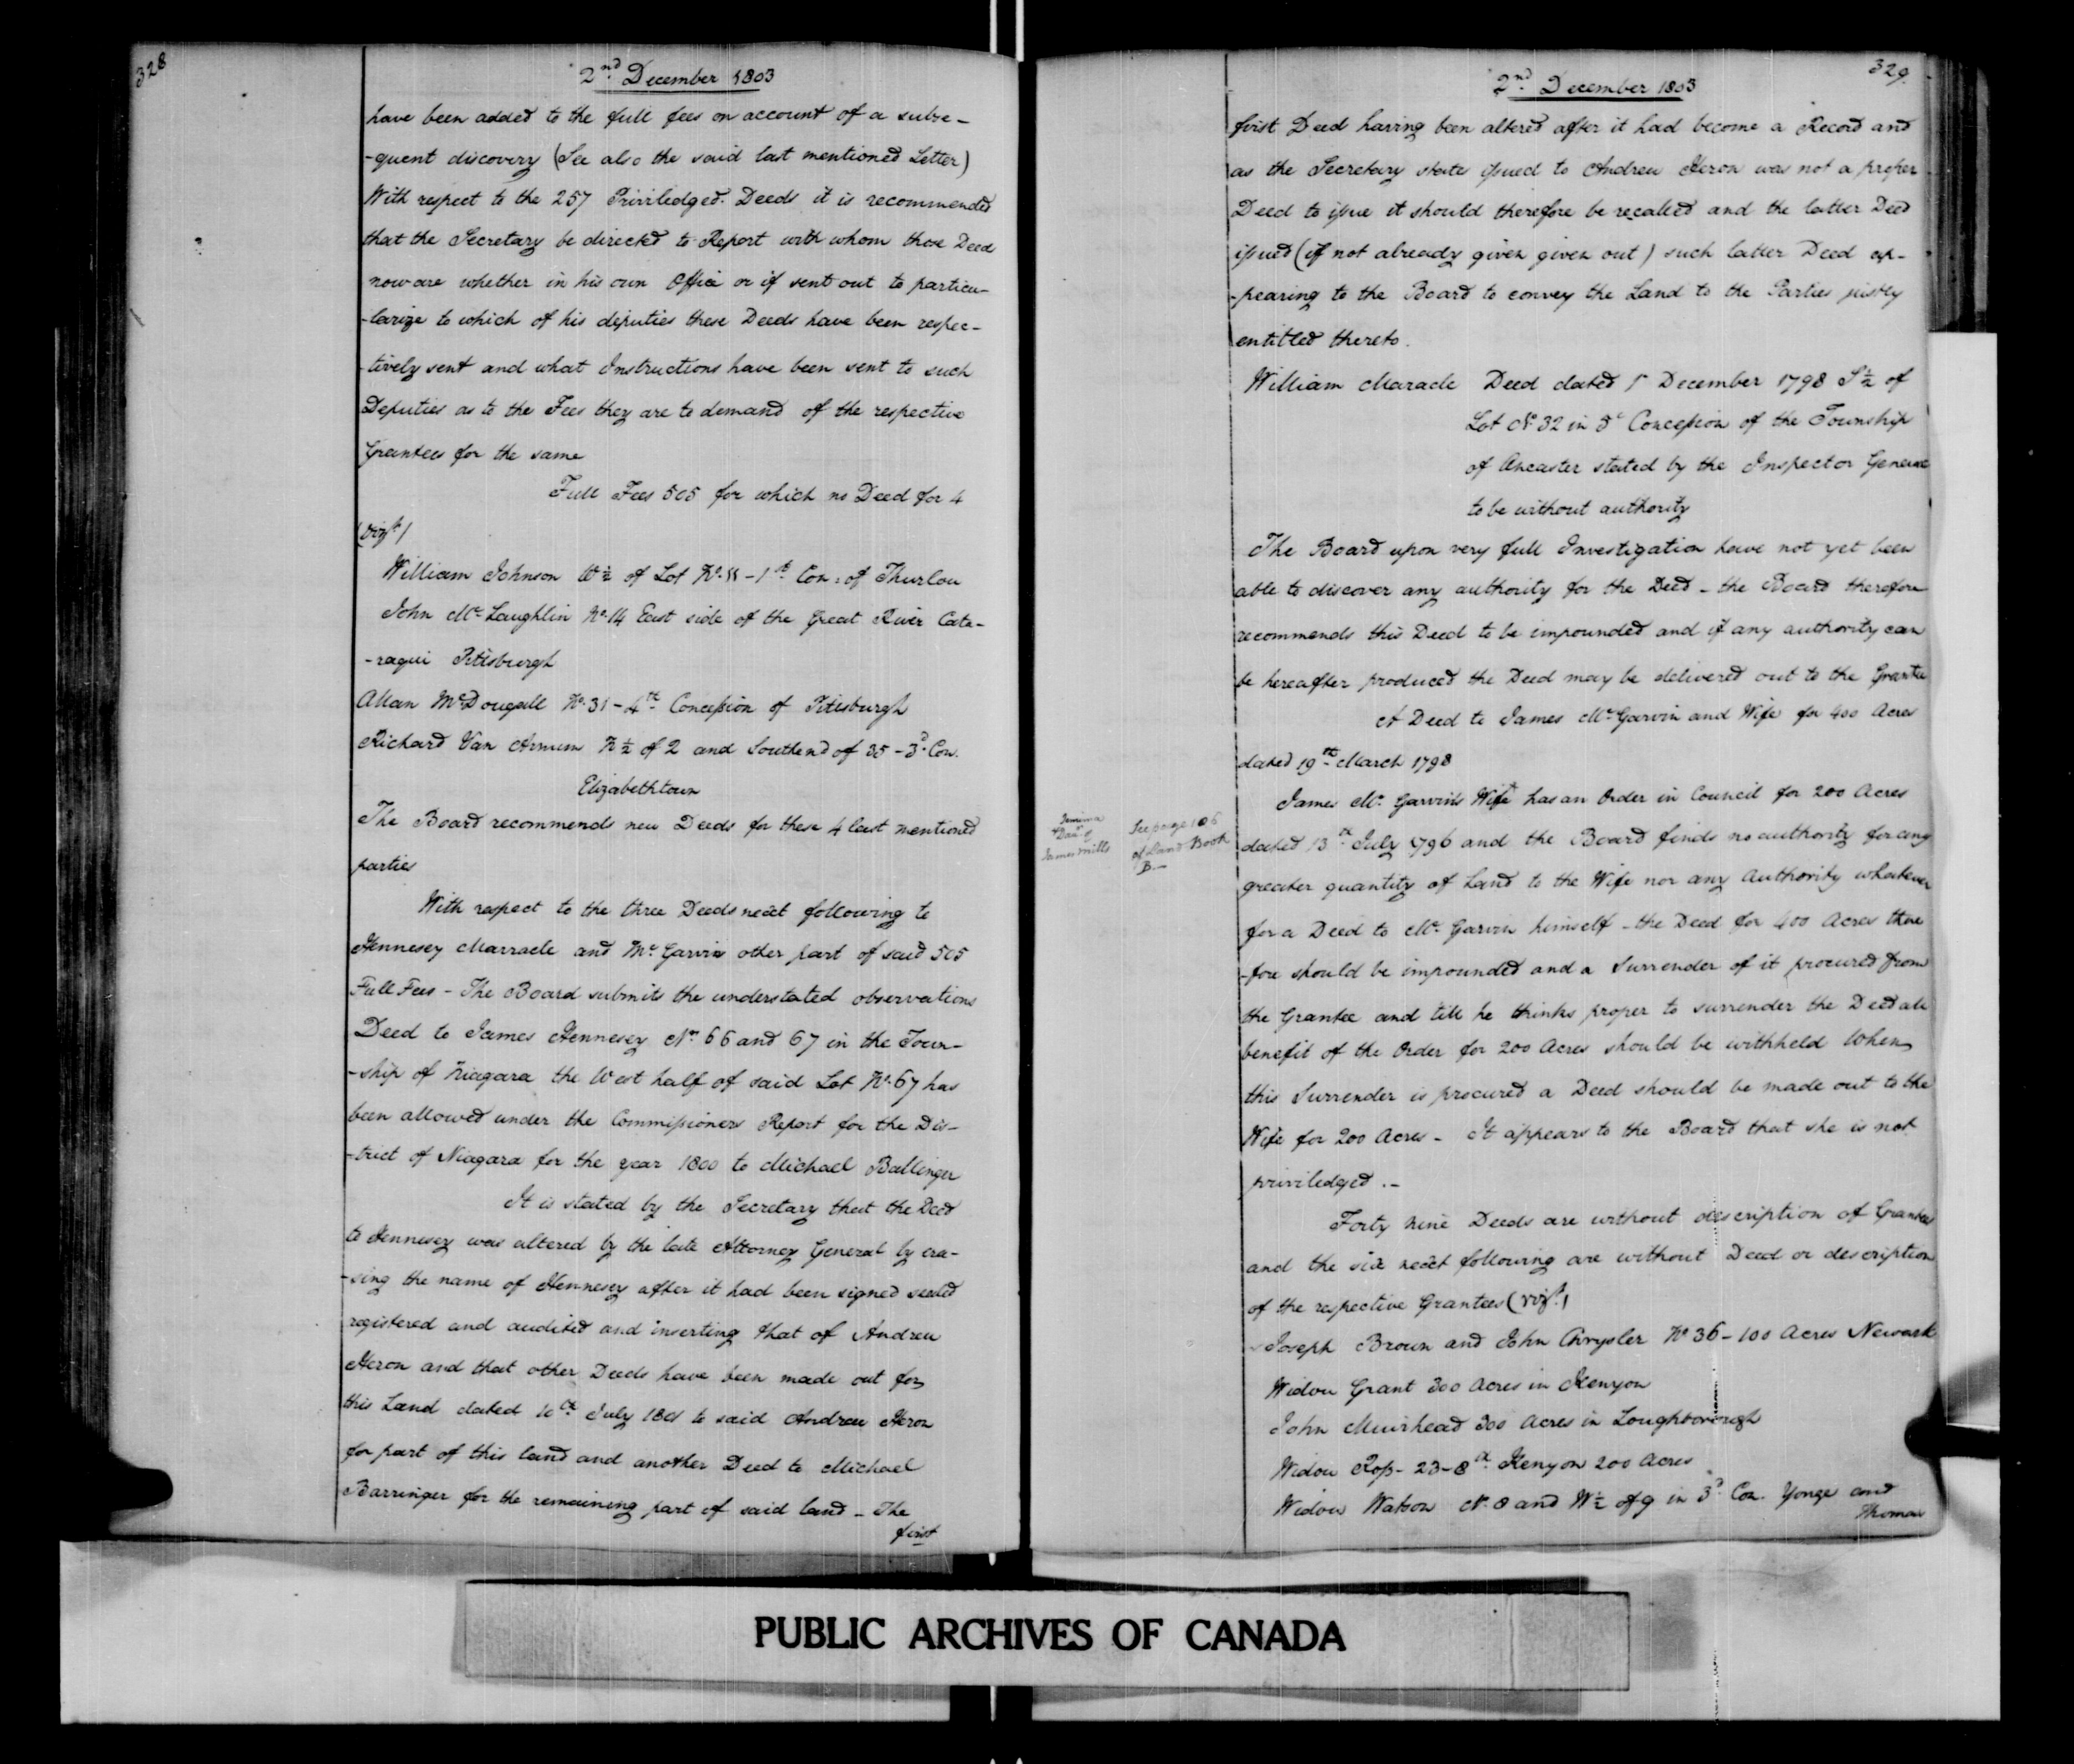 328
2nd December 1803
have been added to the full fees on account of a subse-
-quent discovery (See also the said last mentioned Letter)
With respect to the 257 Priviledged Deeds it is recommended
that the Secretary be directed to Report with whom those Deed
now are whether in his own Office or if sent out to particu-
-larize to which of his deputies these Deeds have been respec-
-tively sent and what Instructions have been sent to such
Deputies as to the Fees they are to demand of the respective
Grantees for the same
Full Fees 505 for which no Deed for 4
(vizt)
William Johnson W½ of Lot No. 11 - 1st Con: of Thurlow
John Mc Laughlin No. 14 East side of the Great River Cata-
-raqui Pittsburgh
Allan McDougall No. 31 - 4th Concession of Pittsburgh
Richard Van Arnum N½ of 2 and South end of 35 - 3d Con.
Elizabethtown
The Board recommends new Deeds for these 4 last mentioned
parties
With respect to the three Deeds next following to
Hennesey Marracle and Mc Garvin other part of said 505
Full Fees - The Board submits the understated observations
Deed to James Hennesey Nos 66 and 67 in the Town-
-ship of Niagara the West half of said Lot No. 67 has
been allowed under the Commissioners Report for the Dis-
-trict of Niagara for the year 1800 to Michael Ballinger
It is stated by the Secretary that the Deed
to Hennesey was altered by the late Attorney General by era-
-sing the name of Hennesey after it had been signed sealed
registered and audited and inserting that of Andrew
Heron and that other Deeds have been made out for
this Land dated 10th July 1801 to said Andrew Heron
for part of this land and another Deed to Michael
Barringer for the remaining part of said land - The
first
329
2nd December 1803
first Deed having been altered after it had become a Record and
as the Secretary states issued to Andrew Heron was not a proper
Deed to issue it should therefore be recalled and the latter Deed
issued (if not already given given out) such latter Deed ap-
-pearing to the Board to convey the Land to the Parties justly
entitled thereto.
William Maracle Deed dated 1st December 1798 S½ of
Lot No 32 in Concession of the Township
of Ancaster stated by the Inspector General
to be without authority
The Board upon very full Investigation have not yet been
able to discover any authority for the Deed - the Board therefore
recommends this Deed to be impounded and if any authority can
be hereafter produced the Deed may be delivered out to the Grantee
A Deed to James Mc Garvin and Wife for 400 Acres
dated 19th March 1798
James Mc Garvin's Wife has an Order in Council for 200 Acres
Jemima
Daur of
James Mills
See page 106
of Land Book
B. -
dated 13th July 1796 and the Board finds no authority for any
greater quantity of Land to the Wife nor any Authority whatever
for a Deed to Mc Garvin himself - the Deed for 400 Acres there
-fore should be impounded and a Surrender of it procured from
the Grantee and till he thinks proper to surrender the Deed all
benefit of the Order for 200 Acres should be withheld When
this Surrender is procured a Deed should be made out to the
Wife for 200 Acres - It appears to the Board that she is not
priviledged. -
Forty nine Deeds are without description of Grantees
and the six next following are without Deed or description
of the respective Grantees (vizt)
Joseph Brown and John Chrysler No 36 - 100 Acres Newark
Widow Grant 300 Acres in Kenyon
John Muirhead 300 Acres in Loughborough
Widow Ross - 23 - 8th Kenyon 200 Acres
Widow Watson No. 8 and W½ of 9 in 3d Con. Yonge and
Thomas
PUBLIC ARCHIVES OF CANADA